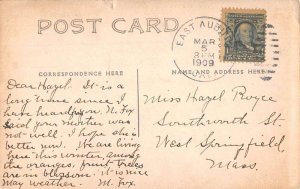 POST CARD
EAST AUB
MAR
5
3 PM
1909
CORRESPONDENCE HERE
NAME AND ADDRESS HERE
Dear Hazel. It is a
long time since I
have heard from N. Fox
said your mother was
not well. I hope she is
better now. We are living
here this winter, among
the oranges, fruit trees
are in blossom. It is nice
May weather. M. Fox.
Miss Hazel Royce
Southworth St
West Springfield
Mass.